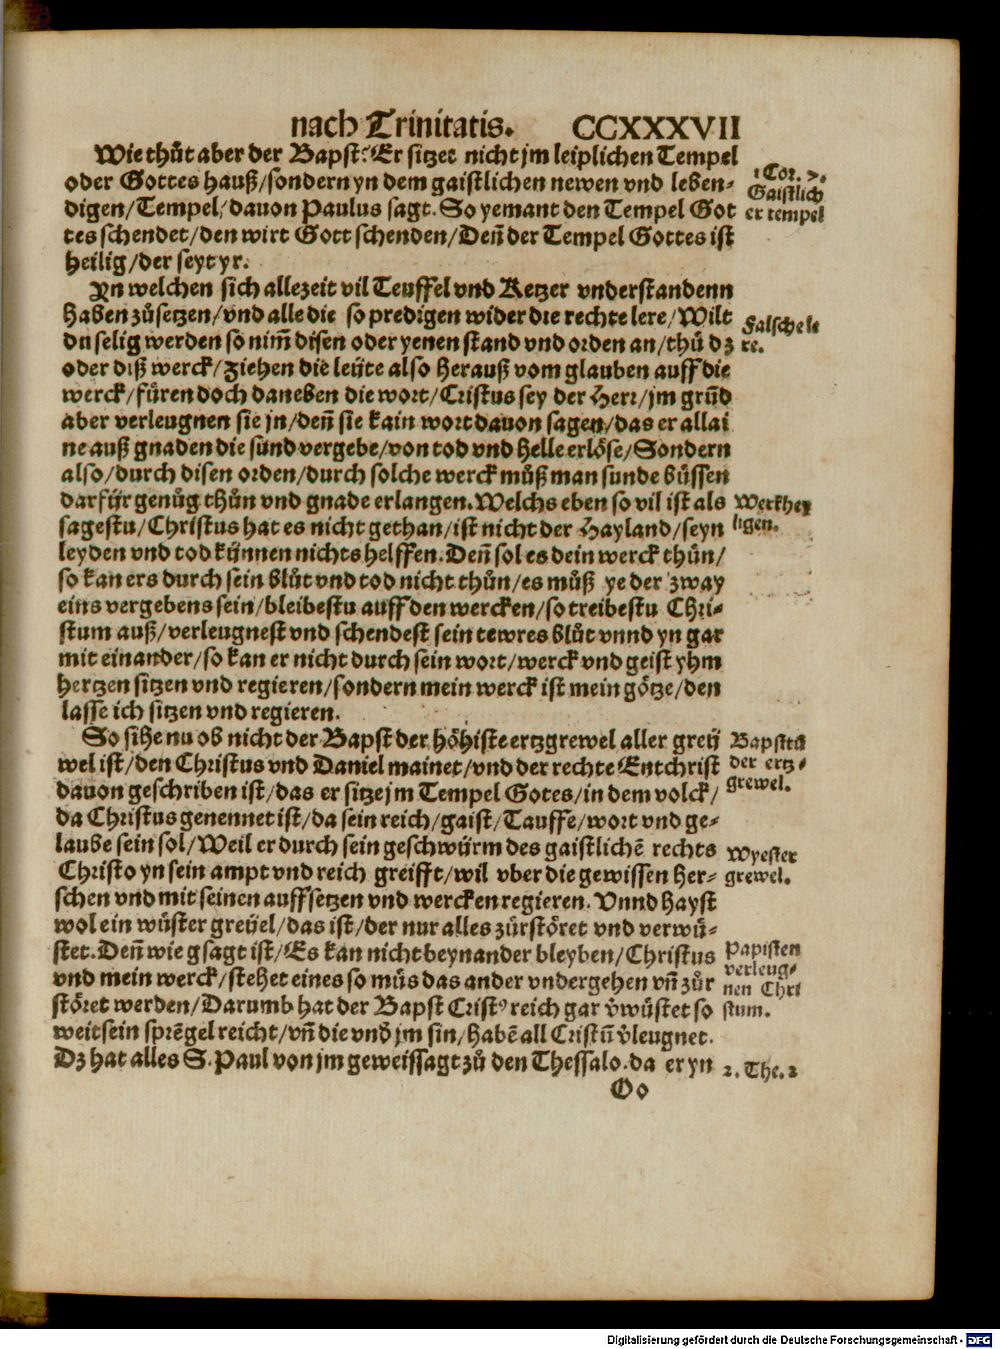 nach Trinitatis. CCXXXVII
Wie thůt aber der Bapst? Er sitzet nicht jm leiplichen Tempel
oder Gottes hauß/sondern yn dem gaistlichen newen vnd leben-
digen/Tempel/dauon Paulus sagt. So yemant den Tempel Got
tes schendet/den wirt Gott schenden/Deñ der Tempel Gottes ist
heilig/der seyt yr.
1 Cor. 3.
Gaistlich
er tempel
Yn welchen sich allezeit vil Teuffel vnd Ketzer vnderstandenn
haben zů setzen/vnd alle die so predigen wider die rechte lere/Wilt
du selig werden so nim̃ disen oder yenen stand vnd orden an/thů dz
oder diß werck/ziehen die leüte also herauß vom glauben auff die
werck/füren doch daneben die wort/Cristus sey der Herr/jm grũd
aber verleugnen sie jn/deñ sie kain wort dauon sagen/das er allai
ne auß gnaden die sünd vergebe/von tod vnd helle erlöse/Sondern
also/durch disen orden/durch solche werck můß man sunde büssen
darfür genůg thůn vnd gnade erlangen. Welchs eben so vil ist als
sagestu/Christus hat es nicht gethan/ist nicht der Hayland/seyn
leyden vnd tod künnen nichts helffen. Deñ sol es dein werck thůn/
so kan ers durch sein blůt vnd tod nicht thůn/es můß ye der zway
eins vergebens sein/bleibestu auff den wercken/so treibestu Chri-
stum auß/verleugnest vnd schendest sein tewres blůt vnnd yn gar
mit einander/so kan er nicht durch sein wort/werck vnd geist yhm
hertzen sitzen vnd regieren/sondern mein werck ist mein götze/den
lasse ich sitzen vnd regieren.
Falsche le
re.
Werkhey
ligen.
So sihe nu ob nicht der Bapst der höhiste ertzgrewel aller greü
wel ist/den Christus vnd Daniel mainet/vnd der rechte Entchrist
dauon geschriben ist/das er sitze jm Tempel Gotes/in dem volck/
da Christus genennet ist/da sein reich/gaist/Tauffe/wort vnd ge-
laube sein sol/Weil er durch sein geschwürm des gaistlichẽ rechts
Christo yn sein ampt vnd reich greifft/wil vber die gewissen her-
schen vnd mit seinen auffsetzen vnd wercken regieren. Vnnd hayst
wol ein wüster greüel/das ist/der nur alles zůrstöret vnd verwü-
stet. Deñ wie gsagt ist/Es kan nicht beynander bleyben/Christus
vnd mein werck/stehet eines so můs das ander vndergehen vñ zůr
störet werden/Darumb hat der Bapst Cristꝰ reich gar v̊wüstet so
weit sein sprẽgel reicht/vñ die vnd̓ jm sin/habẽ all Cristũ v̊leugnet.
Dz hat alles S. Paul von jm geweissagt zů den Thessalo. da er yn
Bapstů
der ertz-
grewel.
Wyester
grewel.
Papisten
verleug-
nen Chri
stum.
2. The. 2
Oo
Digitalisierung gefördert durch die Deutsche Forschungsgemeinschaft - DFG